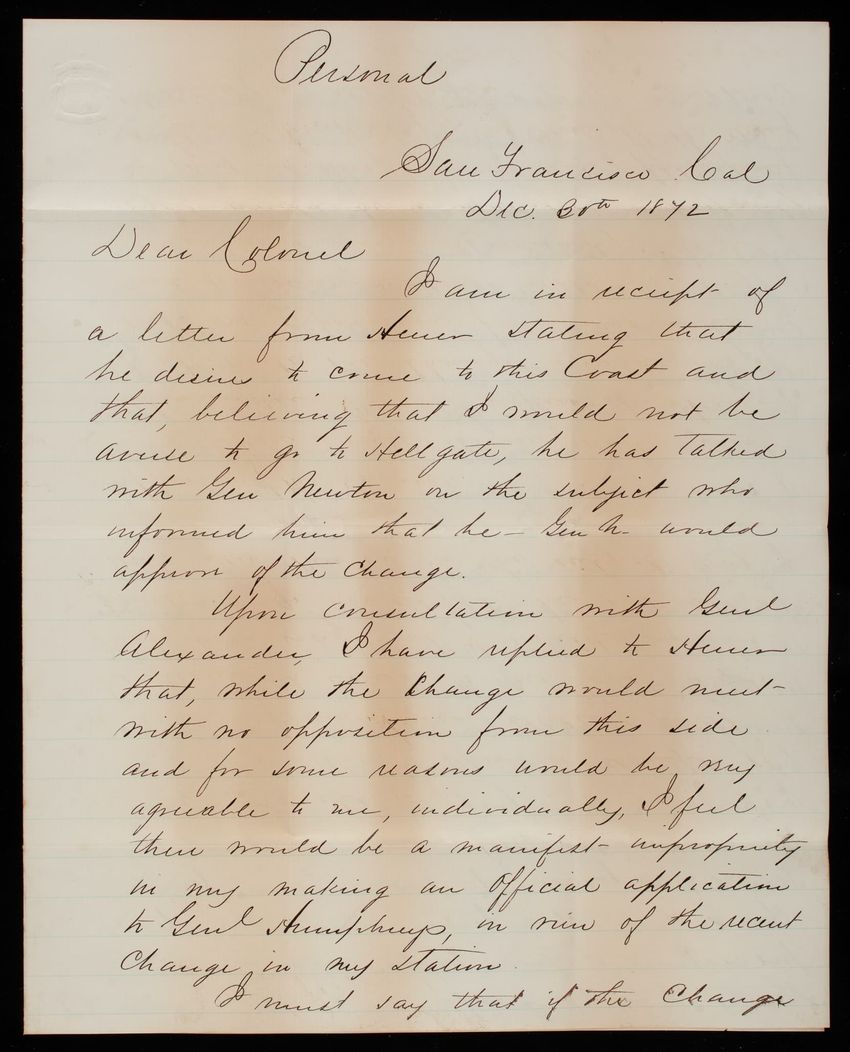 Personal
San Francisco Cal
Dec. 30th 1872
Dear Colonel
I am in receipt of
a letter from Heuer stating that
he desires to come to this Coast and
that, believing that I would not be
averse to go to Hellgate, he has talked
with Gen Newton on the subject who
informed him that he - Gen N. would
approve of the change.
Upon consultation with Genl
Alexander, I have replied to Heuer
that, while the change would meet
with no opposition from this side
and for some reasons would be very
agreeable to me, individually, I feel
there would be a manifest impropriety
in my making an official application
to Genl Humphreys, in view of the recent
change in my station.
I must say that if the change